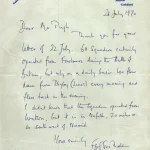 26 July 1990
Dear Mr Pugh
Thank you for your
letter of 22 July. 60 Squadron certainly
operated from Fowlmere during the Battle of
Britain, but only on a daily basis. We flew
down from Digby (Lincs) every morning and
flew back in the evening.
I didn't know that the Squadron operated from
Watton, but it is in Norfolk, 20 miles or
so south west of Norwich.
Yours sincerely